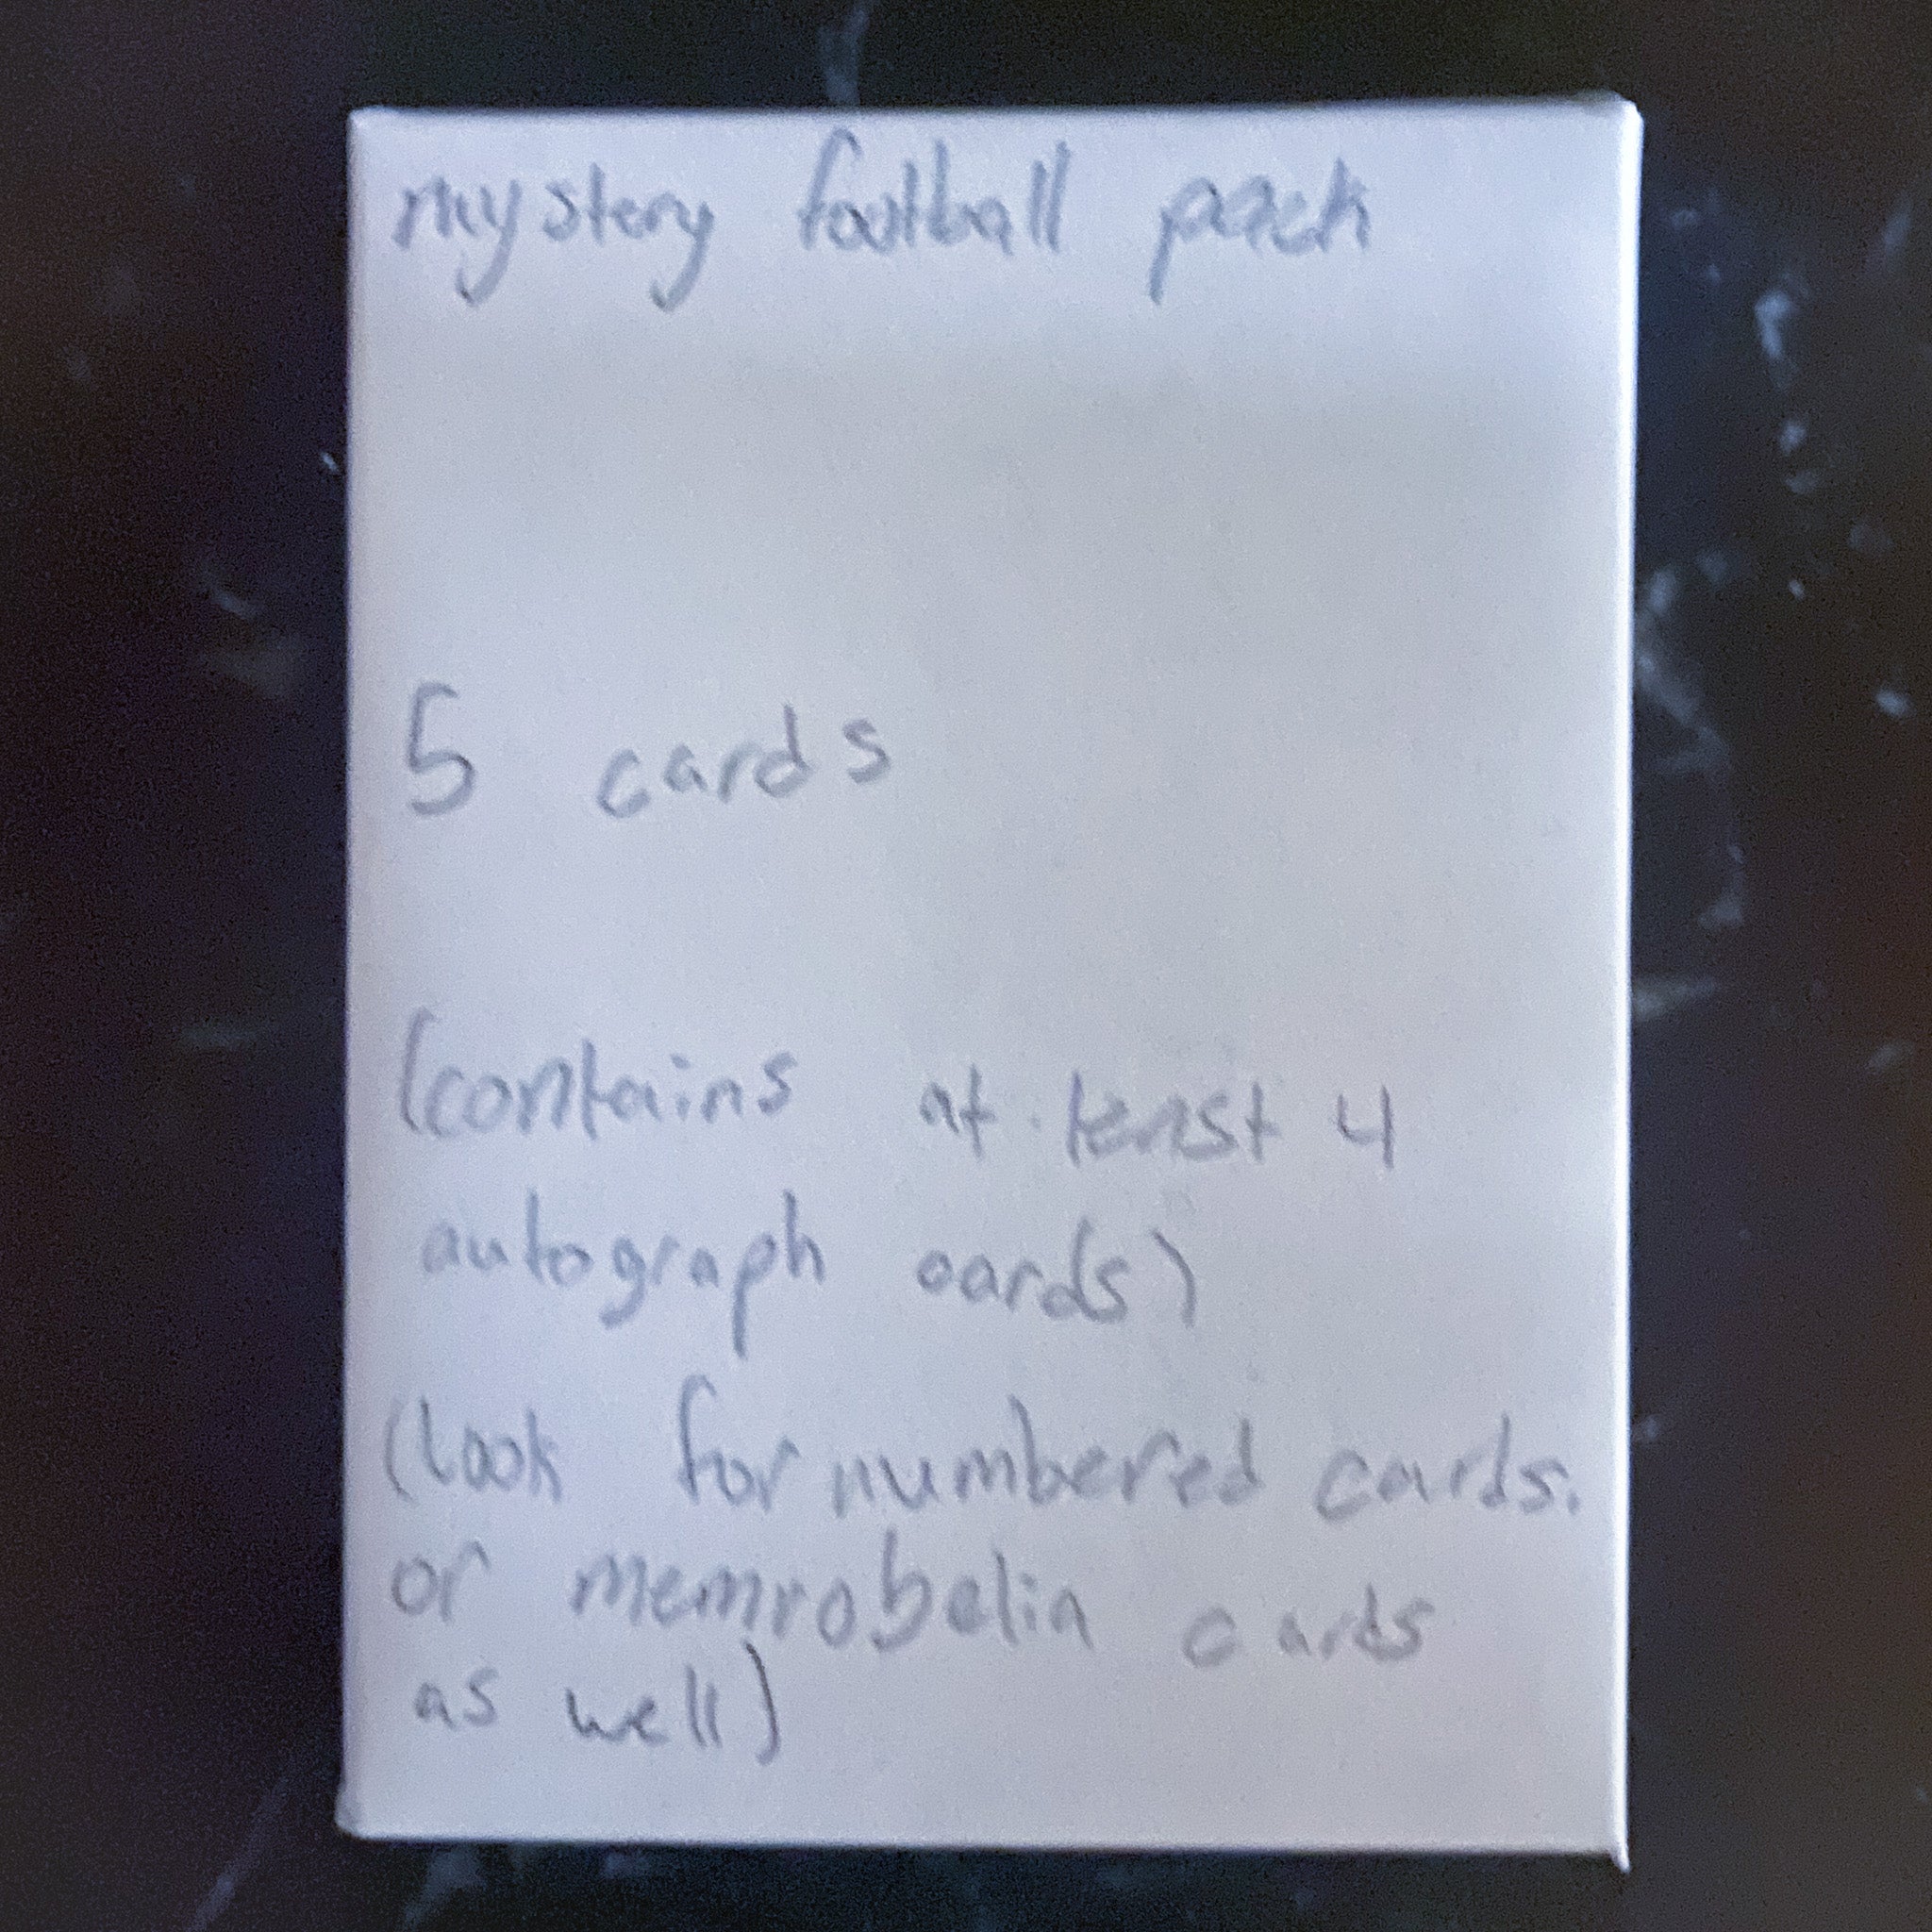 mystery football pack
5 cards
(contains at least 4
autograph cards)
(Look for numbered cards.
or memrobelia cards
as well)